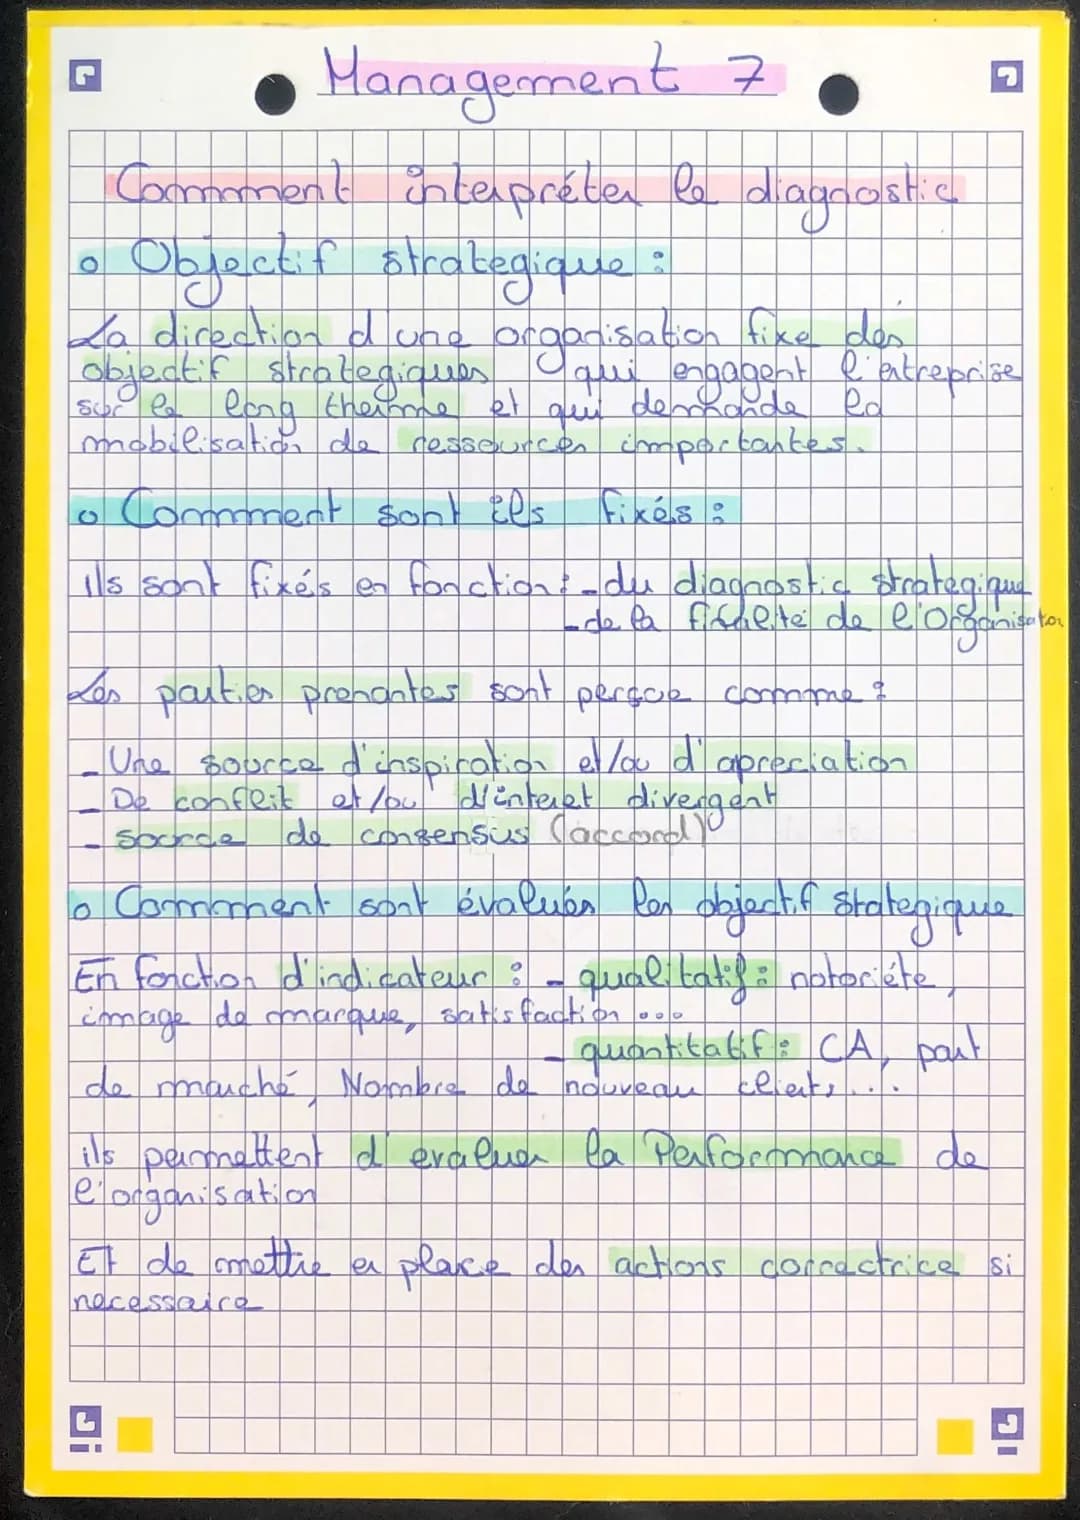 Management 7
Comment interpréter le diagnostic
o Objectif strategique :
La direction d'une organisation fixe des
objectif strategiques qui engagent l'entreprise
sur le long therme et qui demande la
mobilisation de ressources importantes.
o Comment sont ils fixés :
ils sont fixés en fonction : - du diagnostic strategique
- de la de l'Organisation
Les parties prenantes sont perçue comme :
- Une source d'inspiration et/ou d'apreciation
- De conflit et/ou d'interet divergent
- source de consensus (accord)
o Comment sont évalués les objectif Stategique
En fonction d'indicateur : - qualitatif : notoriéte,
image de marque, satisfaction ...
- quantitatif : CA, part
de marché, Nombre de nouveau clients ...
ils permettent d'evaluer la Performance de
l'organisation
Et de mettre en place des actions correctrice si
necessaire